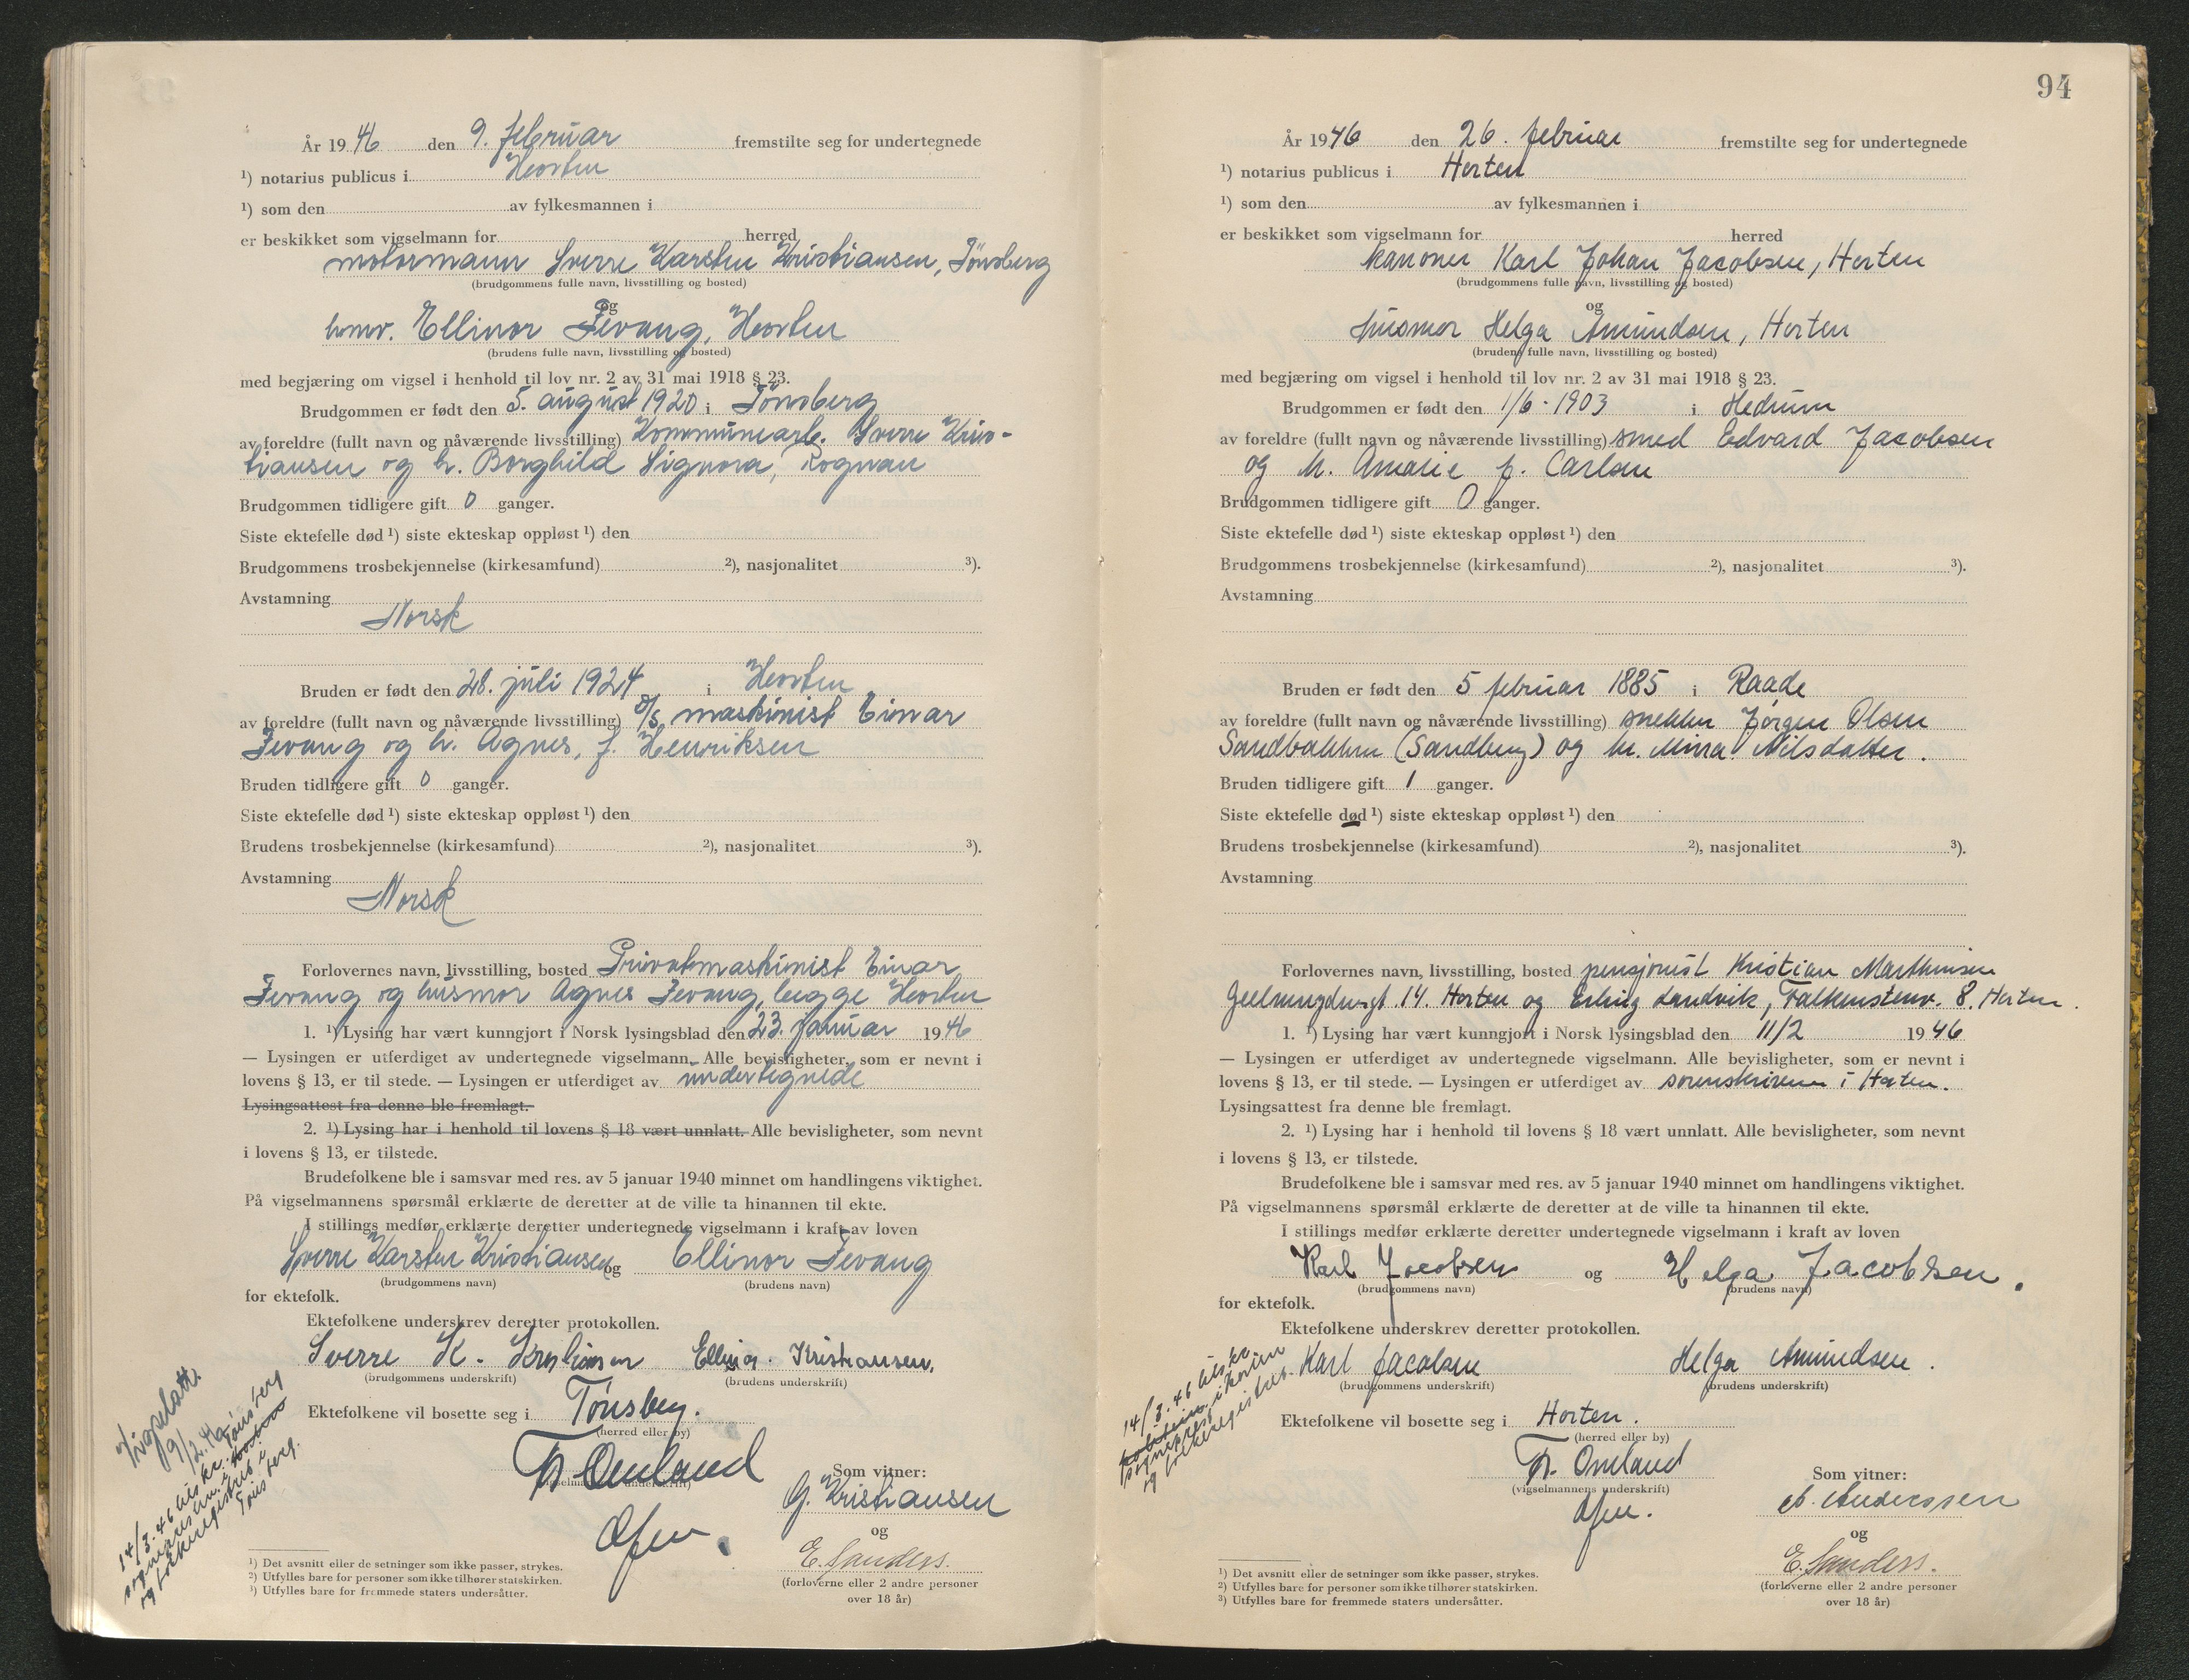 År 1946 den 9. februar fremstilte seg for undertegnede
¹) notarius publicus i Horten
¹) som den av fylkesmannen i
er beskikket som vigselmann for herred
motormann Sverre Karsten Kristiansen, Tönsberg
(brudgommens fulle navn, livsstilling og bosted)
og
Ellinor Fevang, Horten
(brudens fulle navn, livsstilling og bosted)
med begjæring om vigsel i henhold til lov nr. 2 av 31 mai 1918 § 23.
Brudgommen er født den 5. august 1920 i Tönsberg
av foreldre (fullt navn og nåværende livsstilling) Kommunearb. Sverre Kris-
tiansen og h. Borghild Signora, Rognan
Brudgommen tidligere gift 0 ganger.
Siste ektefelle død ¹) siste ekteskap oppløst ¹) den
Brudgommens trosbekjennelse (kirkesamfund) ²), nasjonalitet ³).
Avstamning
Norsk
Bruden er født den 28. juli 1924 i Horten
av foreldre (fullt navn og nåværende livsstilling) maskinist Einar
Fevang og h. Agnes, f. Henriksen
Bruden tidligere gift 0 ganger.
Siste ektefelle død ¹) siste ekteskap oppløst ¹) den
Brudens trosbekjennelse (kirkesamfund) ²), nasjonalitet ³).
Avstamning
Norsk
Forlovernes navn, livsstilling, bosted Privatmaskinist Einar
Fevang og husmor Agnes Fevang, begge Horten
1. ¹) Lysing har vært kunngjort i Norsk lysingsblad den 23. januar 1946
— Lysingen er utferdiget av undertegnede vigselmann. Alle bevisligheter, som er nevnt i
lovens § 13, er til stede. — Lysingen er utferdiget av undertegnede
Lysingsattest fra denne ble fremlagt.
2. ¹) Lysing har i henhold til lovens § 18 vært unnlatt. Alle bevisligheter, som nevnt
i lovens § 13, er tilstede.
Brudefolkene ble i samsvar med res. av 5 januar 1940 minnet om handlingens viktighet.
På vigselmannens spørsmål erklærte de deretter at de ville ta hinannen til ekte.
I stillings medfør erklærte deretter undertegnede vigselmann i kraft av loven
Sverre Karsten Kristiansen og Ellinor Fevang
(brudgommens navn) (brudens navn)
for ektefolk.
Ektefolkene underskrev deretter protokollen.
Sverre K. Kristiansen Ellinor Kristiansen.
(brudgommens underskrift) (brudens underskrift)
Ektefolkene vil bosette seg i Tönsberg.
(herred eller by)
Omland
(vigselmannens underskrift)
Som vitner:
G. Kristiansen
og
E. Sanders.
(forloverne eller 2 andre personer
over 18 år)
Vigselatt.
9/2.46
14/3.46 tils kr. Tönsberg
og folkeregistret i
Tönsberg.
¹) Det avsnitt eller de setninger som ikke passer, strykes.
²) Utfylles bare for personer som ikke tilhører statskirken.
³) Utfylles bare for fremmede staters undersåtter.
94
År 1946 den 26. februar fremstilte seg for undertegnede
¹) notarius publicus i Horten
¹) som den av fylkesmannen i
er beskikket som vigselmann for herred
kanoner Karl Johan Jacobsen, Horten
(brudgommens fulle navn, livsstilling og bosted)
og
husmor Helga Amundsen, Horten
(brudens fulle navn, livsstilling og bosted)
med begjæring om vigsel i henhold til lov nr. 2 av 31 mai 1918 § 23.
Brudgommen er født den 1/6-1903 i Hedrum
av foreldre (fullt navn og nåværende livsstilling) smed Edvard Jacobsen
og h. Amalie f. Carlsen
Brudgommen tidligere gift 0 ganger.
Siste ektefelle død ¹) siste ekteskap oppløst ¹) den
Brudgommens trosbekjennelse (kirkesamfund) ²), nasjonalitet ³).
Avstamning
Bruden er født den 5 februar 1885 i Raade
av foreldre (fullt navn og nåværende livsstilling) snekker Jørgen Olsen
Sandbakken (Sandberg) og h. Mina Nilsdatter.
Bruden tidligere gift 1 ganger.
Siste ektefelle død ¹) siste ekteskap oppløst ¹) den
Brudens trosbekjennelse (kirkesamfund) ²), nasjonalitet ³).
Avstamning
Forlovernes navn, livsstilling, bosted pensjonist Kristian Marthinsen
14. Horten og Erling Sandvik, Falkenstenv. 8. Horten.
1. ¹) Lysing har vært kunngjort i Norsk lysingsblad den 11/2 1946
— Lysingen er utferdiget av undertegnede vigselmann. Alle bevisligheter, som er nevnt i
lovens § 13, er til stede. — Lysingen er utferdiget av sorenskriveren i Horten.
Lysingsattest fra denne ble fremlagt.
2. ¹) Lysing har i henhold til lovens § 18 vært unnlatt. Alle bevisligheter, som nevnt
i lovens § 13, er tilstede.
Brudefolkene ble i samsvar med res. av 5 januar 1940 minnet om handlingens viktighet.
På vigselmannens spørsmål erklærte de deretter at de ville ta hinannen til ekte.
I stillings medfør erklærte deretter undertegnede vigselmann i kraft av loven
Karl Jacobsen og Helga Jacobsen.
(brudgommens navn) (brudens navn)
for ektefolk.
Ektefolkene underskrev deretter protokollen.
Karl Jacobsen Helga Amundsen.
(brudgommens underskrift) (brudens underskrift)
Ektefolkene vil bosette seg i Horten.
(herred eller by)
Omland
(vigselmannens underskrift)
Som vitner:
A. Anderssen
og
E. Sanders.
(forloverne eller 2 andre personer
over 18 år)
14/3.46 tils kr.
sogneprest
og folkeregistret.
¹) Det avsnitt eller de setninger som ikke passer, strykes.
²) Utfylles bare for personer som ikke tilhører statskirken.
³) Utfylles bare for fremmede staters undersåtter.